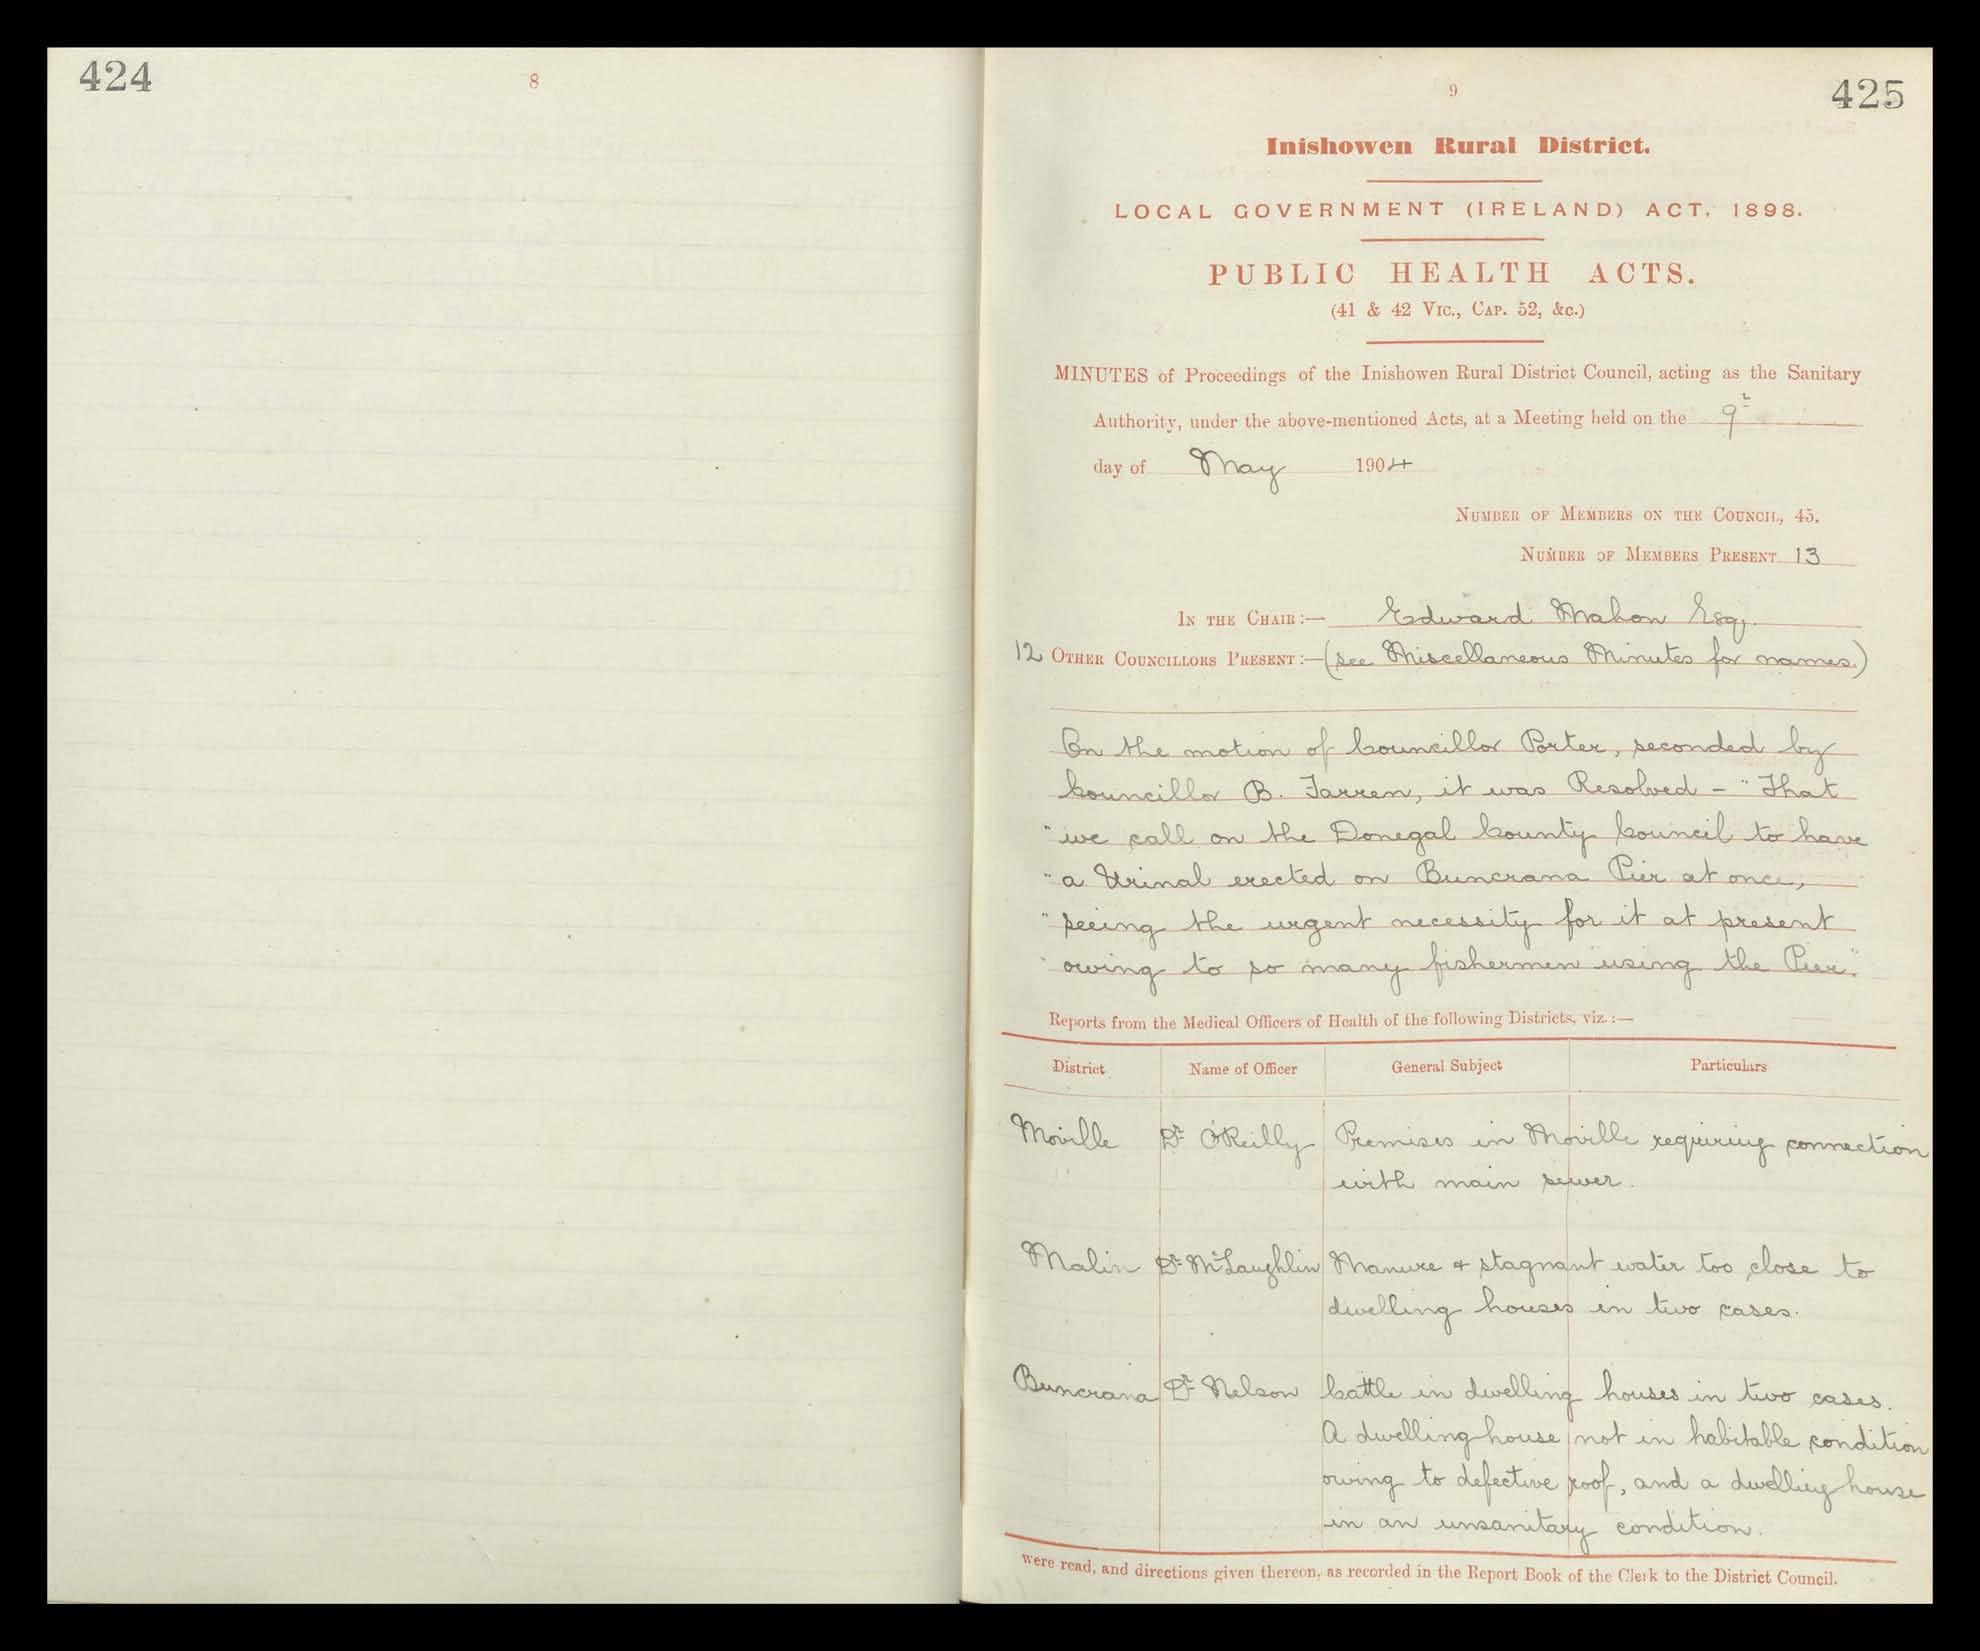 424
8
9
425
Inishowen Rural District.
LOCAL GOVERNMENT (IRELAND) ACT, 1898.
PUBLIC HEALTH ACTS.
(41 & 42 Vic., Cap. 52, &c.)
MINUTES of Proceedings of the Inishowen Rural District Council, acting as the Sanitary
Authority, under the above-mentioned Acts, at a Meeting held on the 9th
day of May 1904
Number of Members on the Council, 45.
Number of Members Present 13
In the Chair:— Edward Mahon Esq.
12 Other Councillors Present:—(see Miscellaneous Minutes for names.)
On the motion of Councillor Porter, seconded by
Councillor B. Farren, it was Resolved – "That
"we call on the Donegal County Council to have
"a Urinal erected on Buncrana Pier at once,
"seeing the urgent necessity for it at present
"owing to so many fishermen using the Pier."
Reports from the Medical Officers of Health of the following Districts, viz.:—
District Name of Officer General Subject Particulars
Moville Dr O'Reilly Premises in Moville requiring connection
with main sewer.
Malin Dr McLaughlin Manure & stagnant water too close to
dwelling houses in two cases.
Buncrana Dr Nelson Cattle in dwelling houses in two cases.
A dwelling house not in habitable condition
owing to defective roof, and a dwelling house
in an unsanitary condition.
were read, and directions given thereon, as recorded in the Report Book of the Clerk to the District Council.